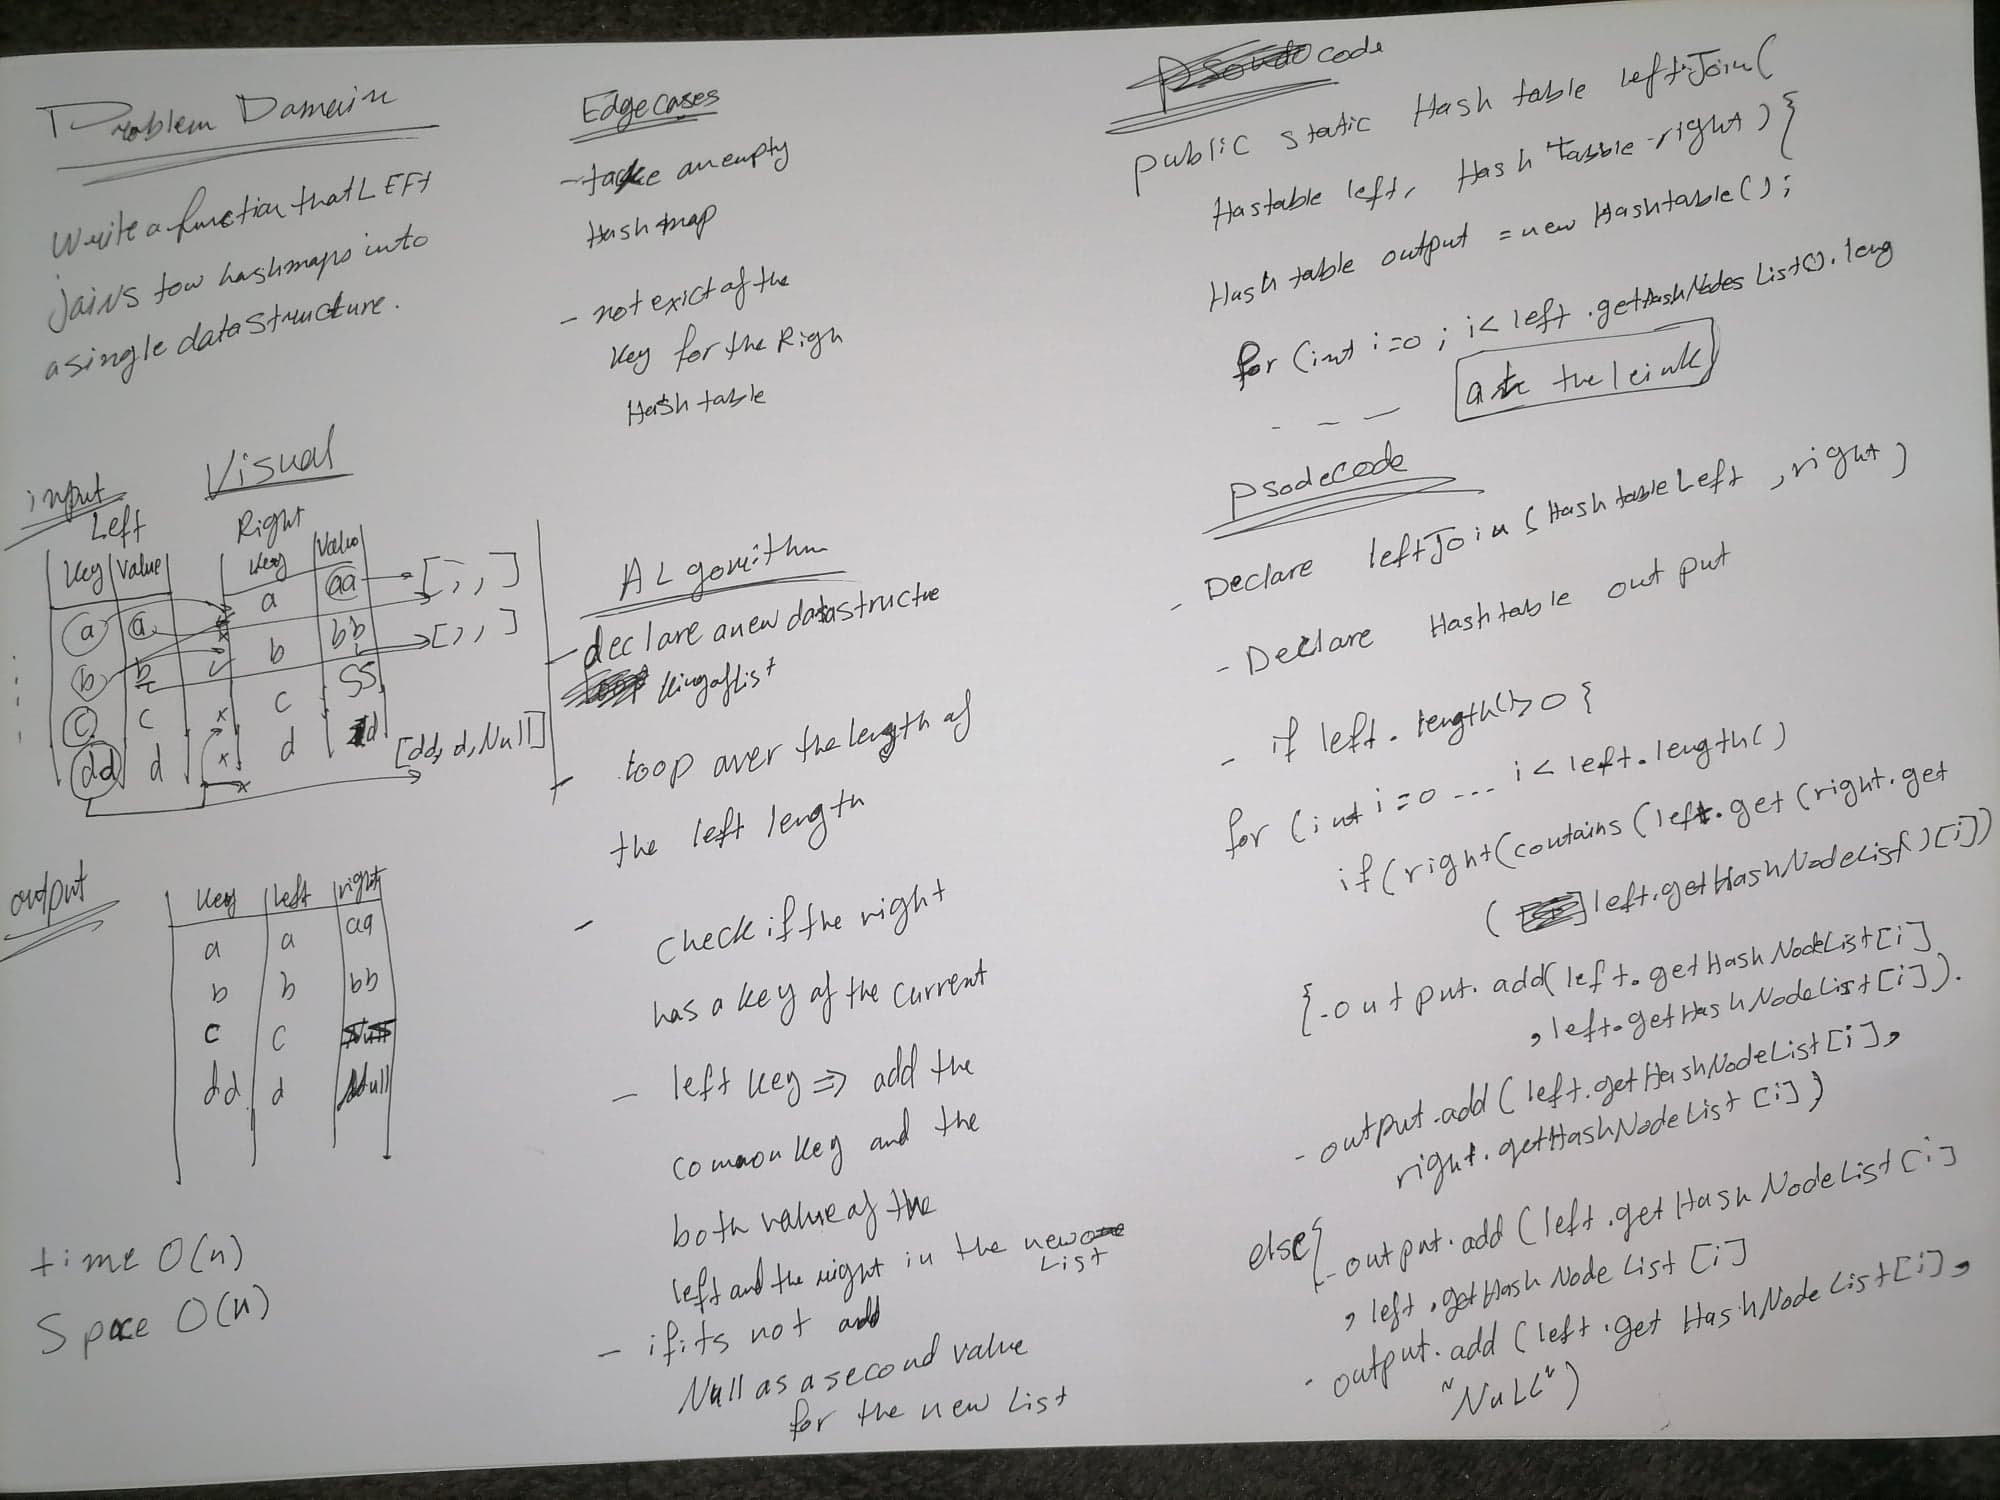 Problem Domain
Write a function that LEFT
joins tow hashmaps into
a single data structure.
Edge cases
- take an empty
Hash map
- not exict of the
key for the Righ
Hash table
Visual
input
Left
Key Value
a a
b b
C c
dd d
Right
key Value
a aa
b bb
c SS
d dd
[ , , ]
[ , , ]
[dd, d, Null]
output
Key left right
a a aa
b b bb
c c Null
dd d Null
time O(n)
Space O(n)
ALgorithm
- declare a new datastructue
king of List
- loop over the length of
the left length
- check if the right
has a key of the current
- left key => add the
comaon key and the
both value of the
left and the right in the new
List
- if its not add
Null as a second value
for the new List
code
public static Hash table leftJoin(
Hastable left, Hash Table right) {
Hash table output = new Hashtable();
for (int i=0 ; i< left .getHashNodes List().leng
- - - the leink
psodecode
- Declare leftJoin (Hash table Left , right)
- Declare Hash table out put
- if left. length()>0 {
for (int i=0 ... i< left.length()
if(right(contains (left.get (right.get
( left.getHashNodeList)[i])
{-out put. add(left.getHashNodeList[i]
, left.getHashNodeList[i]).
- output.add (left.getHashNodeList[i],
right.getHashNodeList [i])
else{- output.add (left .getHash NodeList[i]
, left .getHash Node List [i]
- output.add (left .get HashNodeList[i],
"NuLL")